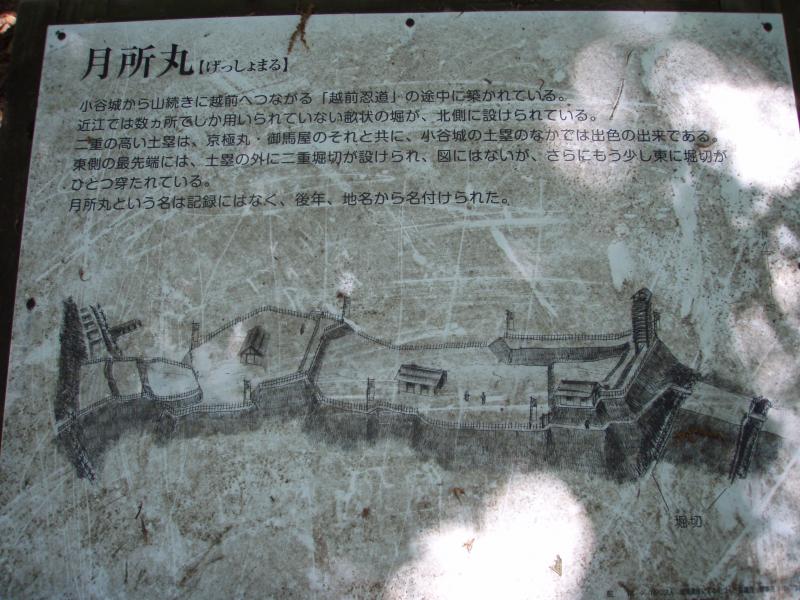 月所丸【げっしょまる】
小谷城から山続きに越前へつながる「越前忍道」の途中に築かれている。
近江では数ヵ所でしか用いられていない畝状の堀が、北側に設けられている。
二重の高い土塁は、京極丸・御馬屋のそれと共に、小谷城の土塁のなかでは出色の出来である。
東側の最先端には、土塁の外に二重堀切が設けられ、図にはないが、さらにもう少し東に堀切が
ひとつ穿たれている。
月所丸という名は記録にはなく、後年、地名から名付けられた。
堀切